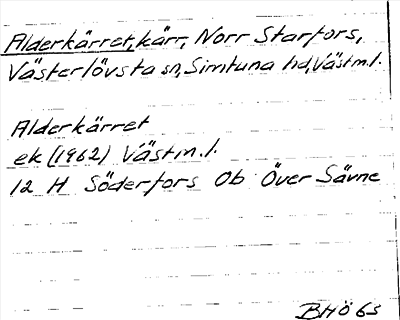 Alderkärret, kärr, Norr Starfors,
Västerlövsta sn, Simtuna hd, Västm.l.
Alderkärret
ek (1962) Västm.l.
12 H Söderfors Ob Över Sävne
BHÖ 65